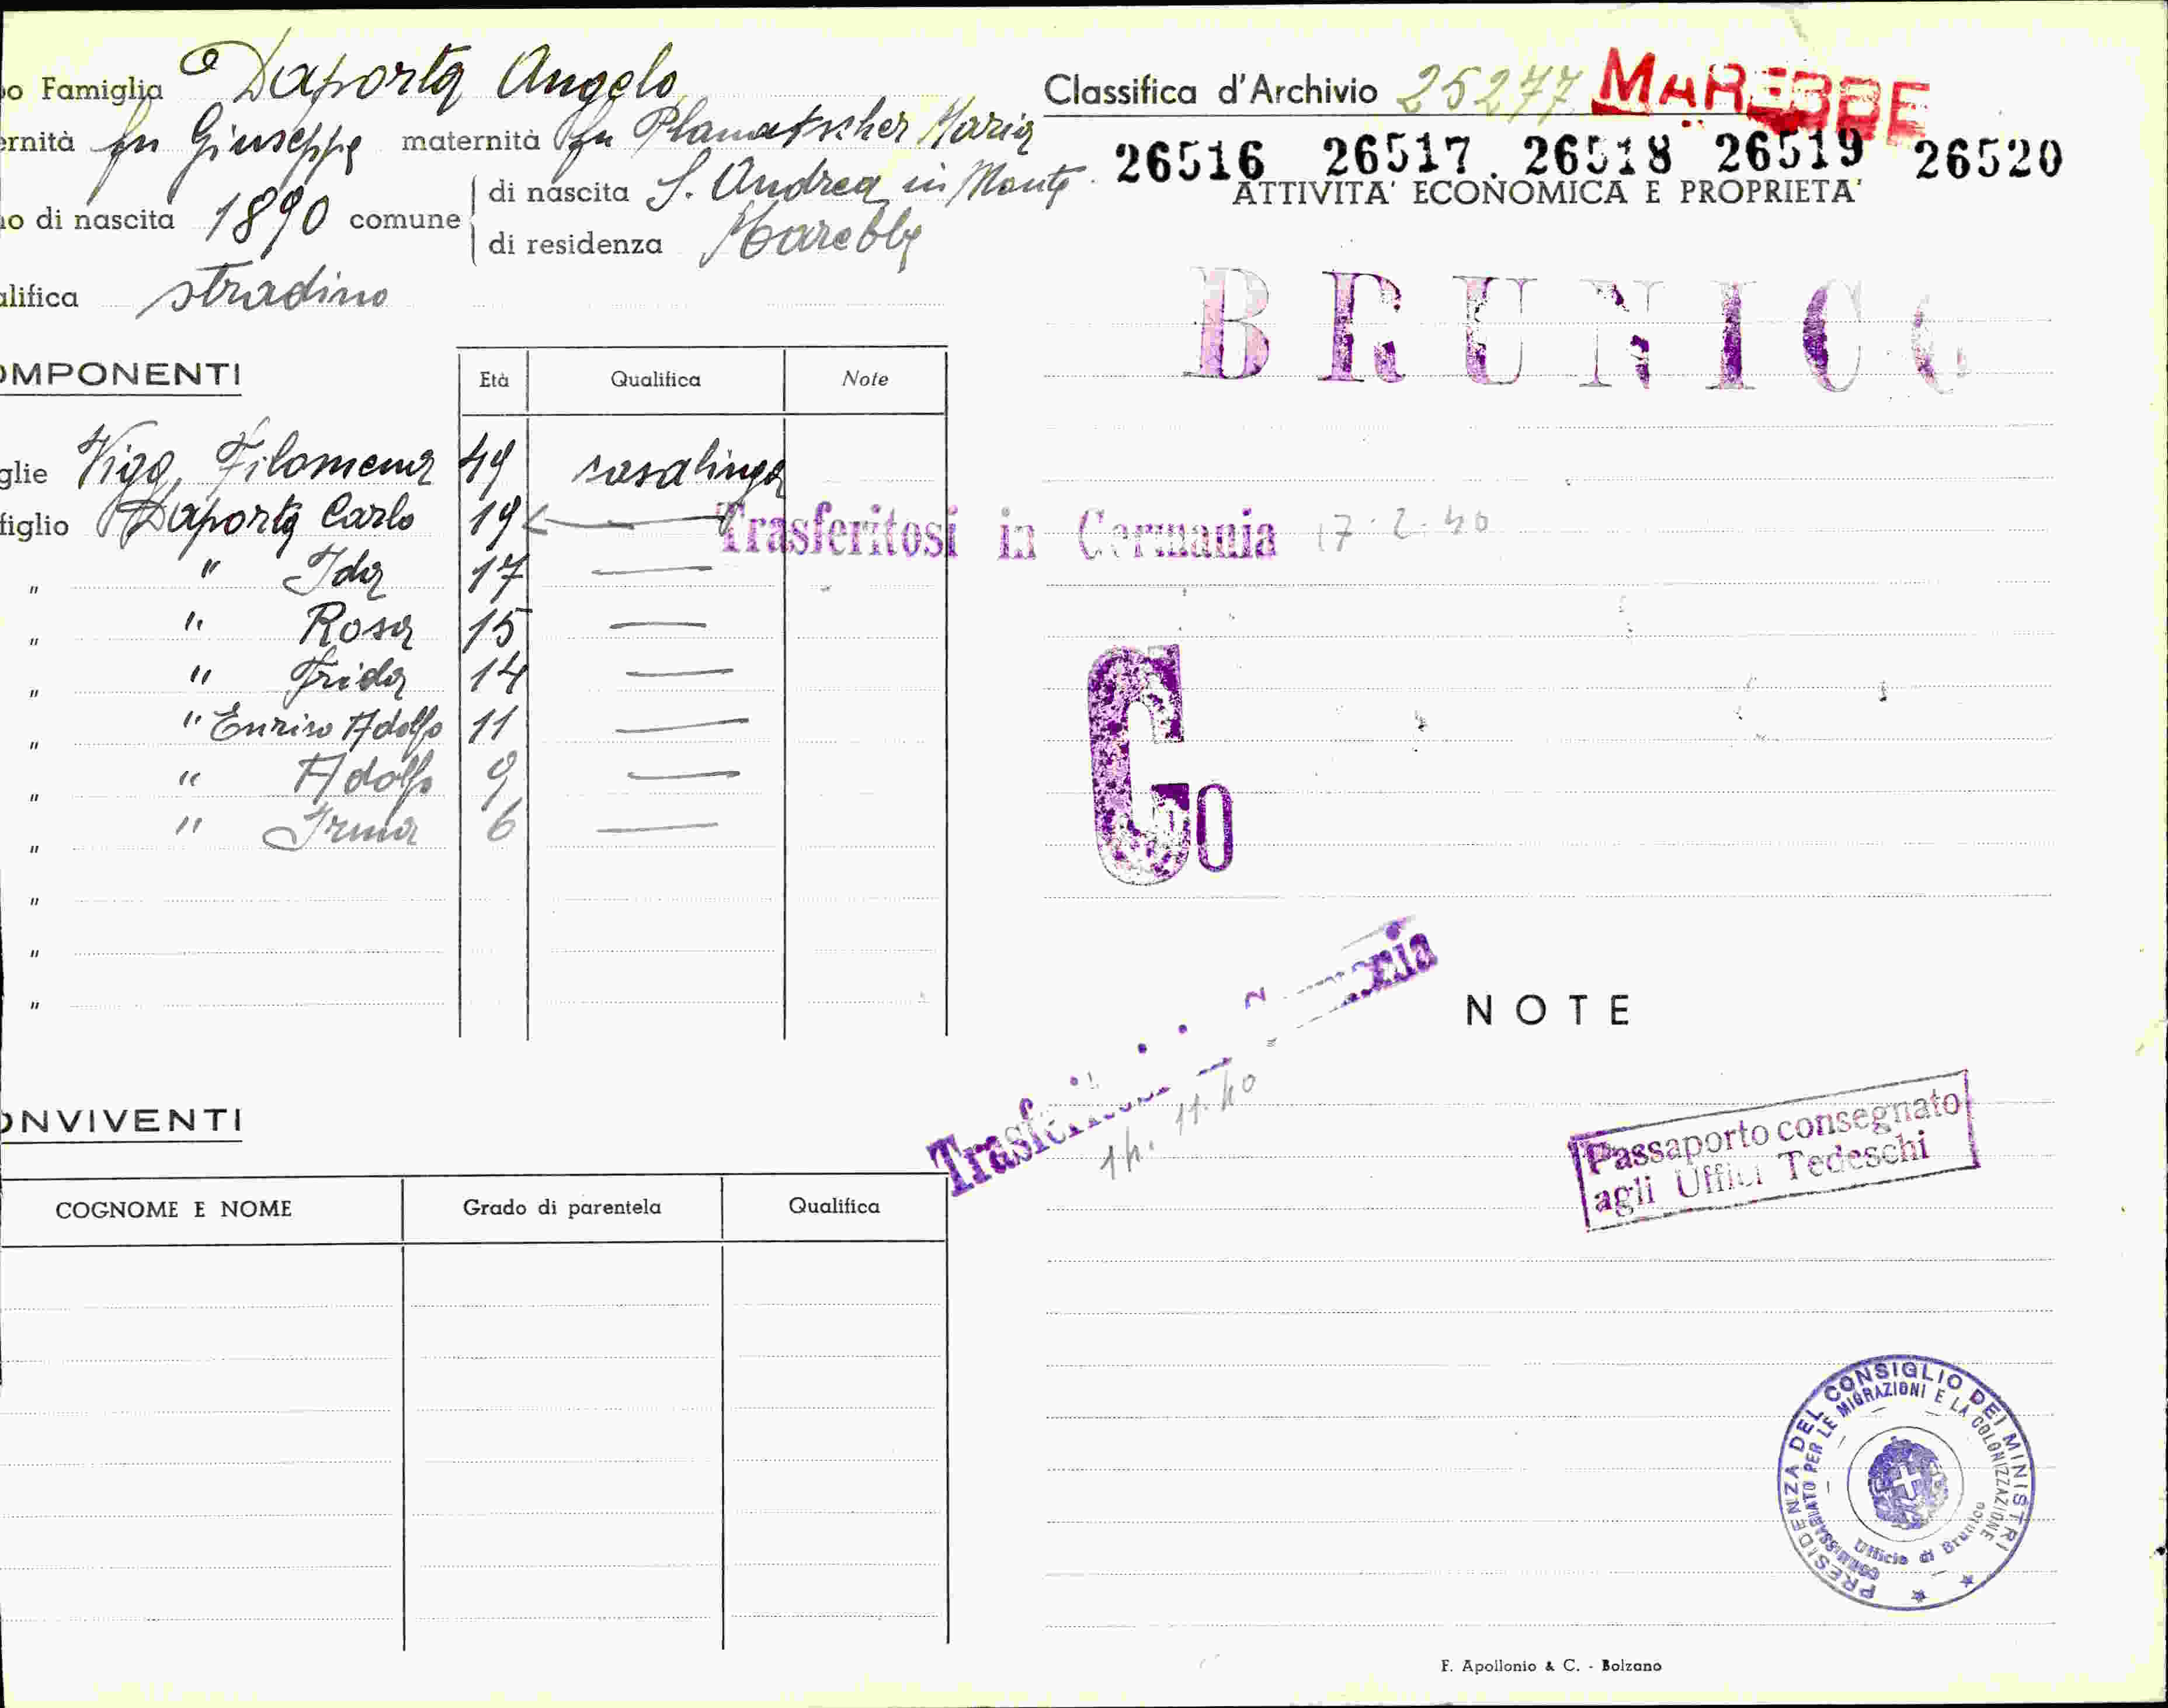 o Famiglia Daporta Angelo
ernità fu Giuseppe maternità fu Plamatscher Maria
o di nascita 1890 comune
di nascita S. Andrea in Monte
di residenza Marebbe
alifica stradino
OMPONENTI Età Qualifica Note
glie Filomena 49 casalinga
figlio Daporta Carlo 19
" " Ida 17
" " Rosa 15
" " Frida 14
" " Enrico Adolfo 11
" " Adolfo 9
" " Irma 6
"
"
"
ONVIVENTI
COGNOME E NOME Grado di parentela Qualifica
Classifica d'Archivio 25277 MAREBBE
26516 26517 26518 26519 26520
ATTIVITA' ECONOMICA E PROPRIETA'
BRUNICO
Trasferitosi in Germania 17.2.40
Go
Trasferitosi in Germania
14.11.40
NOTE
Passaporto consegnato
agli Uffici Tedeschi
PRESIDENZA DEL CONSIGLIO DEI MINISTRI
COMMISSARIATO PER LE MIGRAZIONI E LA COLONIZZAZIONE
Ufficio di Brunico
F. Apollonio & C. - Bolzano